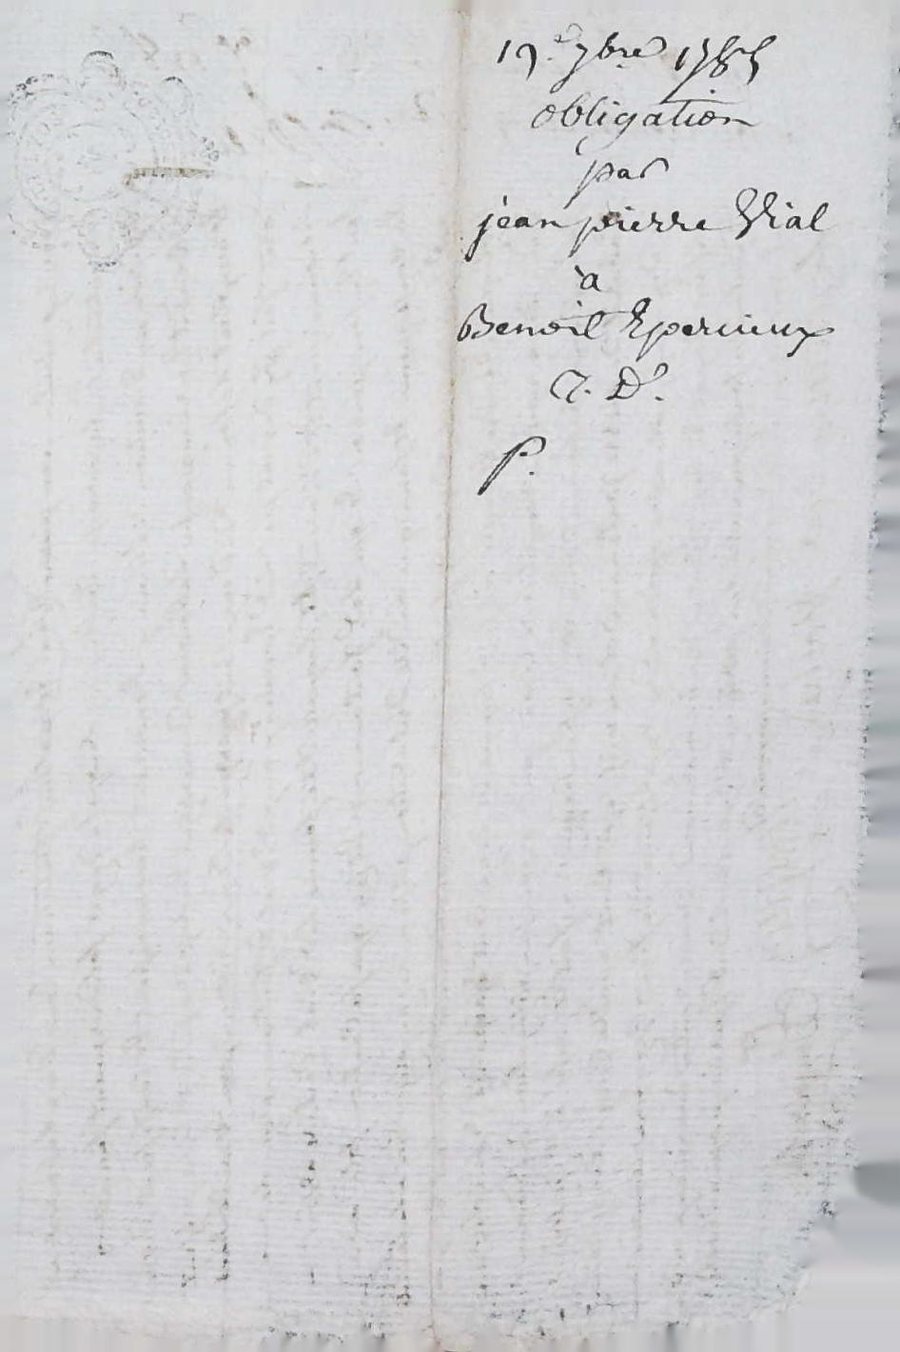 19.e 7bre 1785
obligation
par
jean pierre Vial
à
Benoit Epercieux
P.